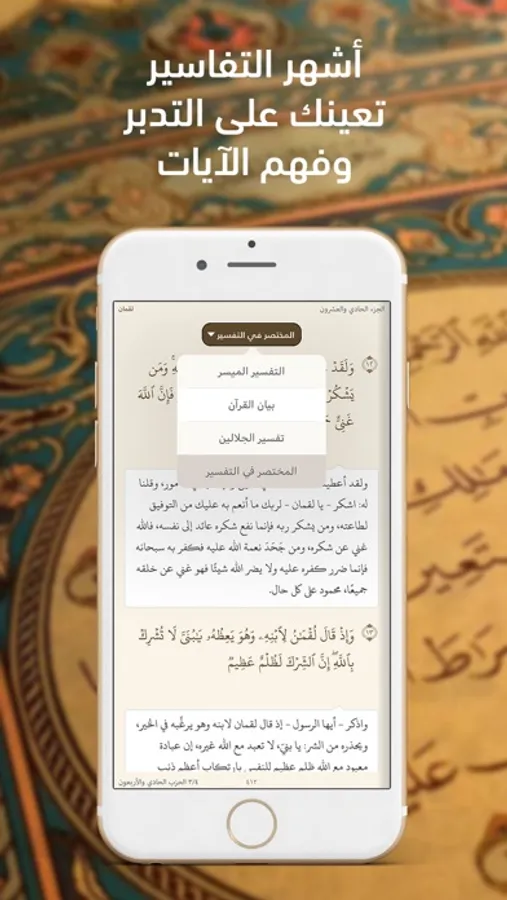 أشهر التفاسير
تعينك على التدبر
وفهم الآيات
الجزء الحادي والعشرون
لقمان
المختصر في التفسير
التفسير الميسر
بيان القرآن
تفسير الجلالين
المختصر في التفسير
١٢ وَلَقَدْ وَمَن
يَشْكُرْ فَإِنَّ ٱللَّهَ
غَنِيٌّ
ولقد أعطينا مور، وقلنا
له: اشكر - يا لقمان - لربك ما أنعم به عليك من التوفيق
لطاعته، ومن يشكر ربه فإنما نفع شكره عائد إلى نفسه، فالله
غني عن شكره، ومن جَحَدَ نعمة الله عليه فكفر به سبحانه
فإنما ضرر كفره عليه ولا يضر الله شيئًا فهو غني عن خلقه
جميعًا، محمود على كل حال.
١٣ وَإِذْ قَالَ لُقْمَـٰنُ لِٱبْنِهِۦ وَهُوَ يَعِظُهُۥ يَـٰبُنَىَّ لَا تُشْرِكْ
بِٱللَّهِۖ إِنَّ ٱلشِّرْكَ لَظُلْمٌ عَظِيمٌ
واذكر - أيها الرسول - إذ قال لقمان لابنه وهو يرغّبه في الخير،
ويحذره من الشر: يا بنيّ، لا تعبد مع الله غيره، إن عبادة
معبود مع الله ظلم عظيم للنفس بارتكاب أعظم ذنب
٤١٢
٣/٤ الحزب الحادي والأربعون